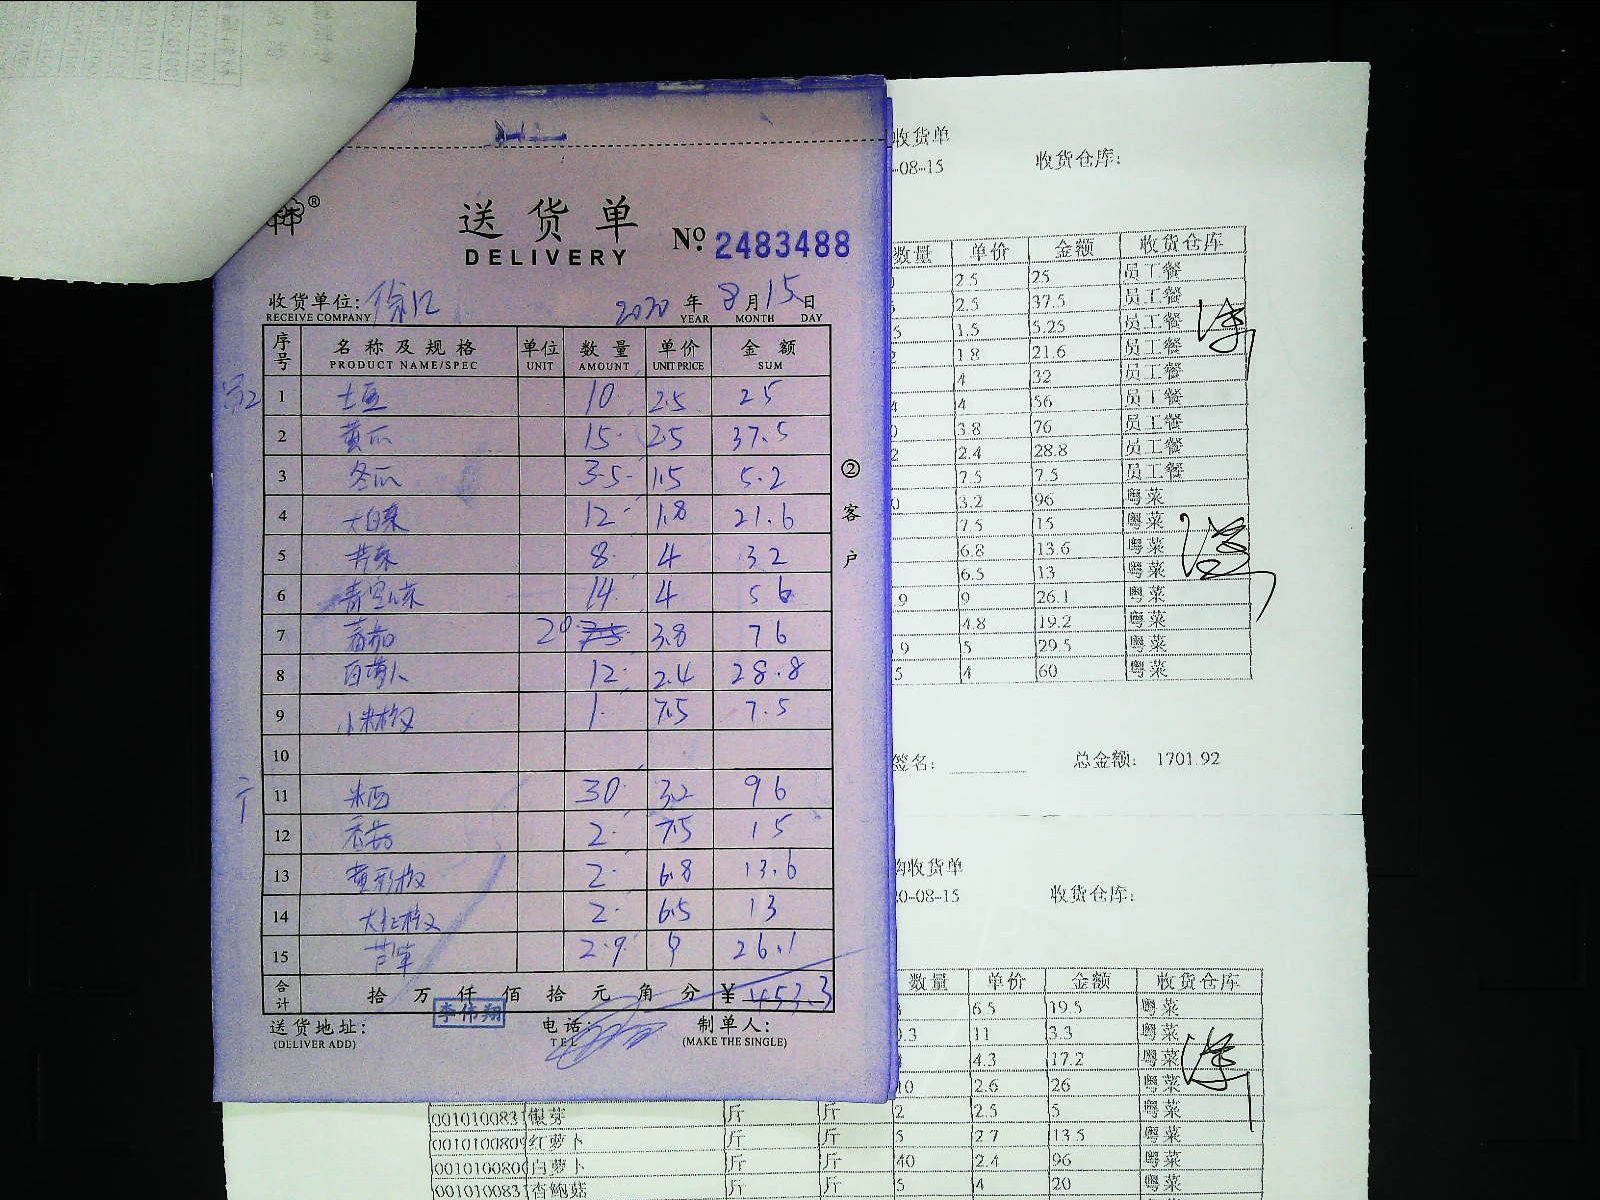 送货单
DELIVERY
No 2483488
收货单位: 徐汇 2020 年 8 月 15 日
RECEIVE COMPANY YEAR MONTH DAY
序号 名称及规格 单位 数量 单价 金额
PRODUCT NAME/SPEC UNIT AMOUNT UNIT PRICE SUM
1 土豆 10 2.5 25
2 黄瓜 15 2.5 37.5
3 冬瓜 3.5 1.5 5.2
4 大白菜 12 1.8 21.6
5 8 4 32
6 14 4 56
7 番茄 20 3.8 76
8 白萝卜 12 2.4 28.8
9 小米椒 1 7.5 7.5
10
11 30 3.2 96
12 香菇 2 7.5 15
13 2 6.8 13.6
14 大红椒 2 6.5 13
15 芦笋 2.9 9 26.1
合计 拾 万 仟 佰 拾 元 角 分 ¥ 453.3
李伟翔
送货地址: 电话: 制单人:
(DELIVER ADD) TEL (MAKE THE SINGLE)
② 客户
收货单
-08-15 收货仓库:
数量 单价 金额 收货仓库
2.5 25 员工餐
2.5 37.5 员工餐
1.5 5.25 员工餐
1.8 21.6 员工餐
4 32 员工餐
4 56 员工餐
3.8 76 员工餐
2.4 28.8 员工餐
7.5 7.5 员工餐
3.2 96 粤菜
7.5 15 粤菜
6.8 13.6 粤菜
6.5 13 粤菜
9 9 26.1 粤菜
4.8 19.2 粤菜
9 5 29.5 粤菜
5 4 60 粤菜
签名: 总金额: 1701.92
购收货单
0-08-15 收货仓库:
数量 单价 金额 收货仓库
6.5 19.5 粤菜
0.3 11 3.3 粤菜
4.3 17.2 粤菜
10 2.6 26 粤菜
001010083 银芽 斤 斤 2 2.5 5 粤菜
001010080 红萝卜 斤 斤 5 2.7 13.5 粤菜
001010080 白萝卜 斤 斤 40 2.4 96 粤菜
001010083 杏鲍菇 斤 斤 5 4 20 粤菜